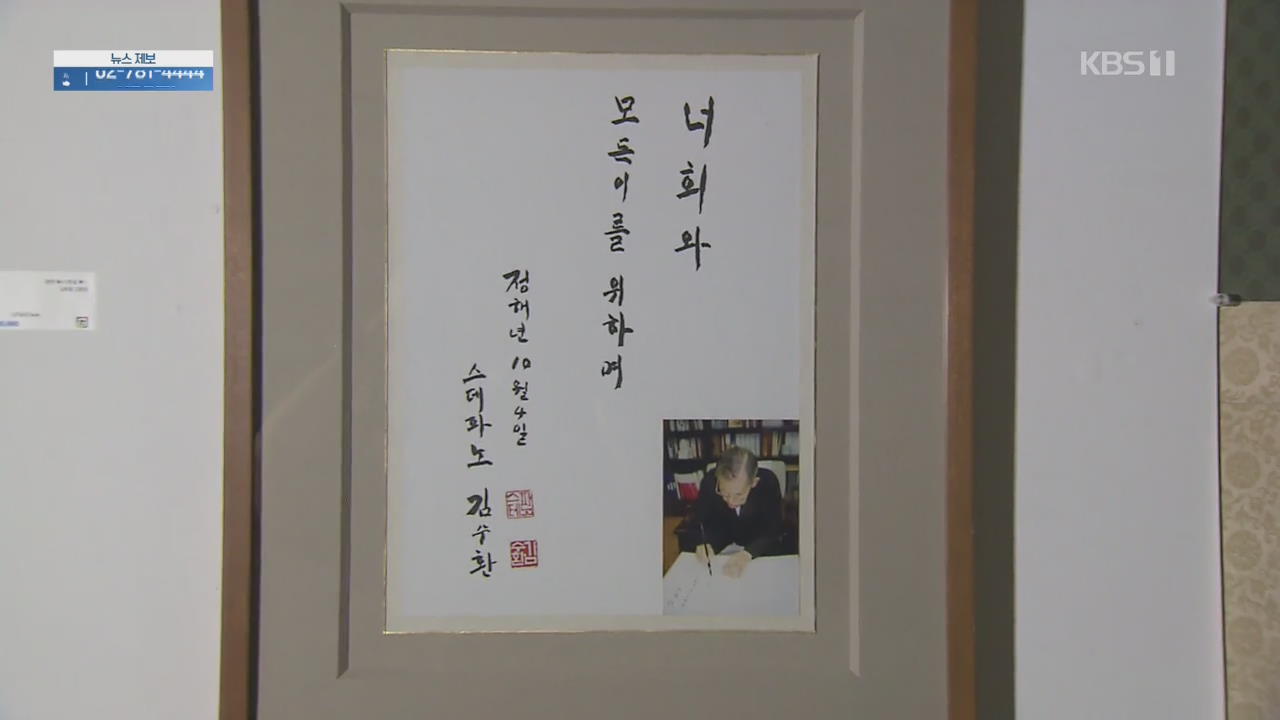 뉴스 제보
02-781-4444
KBS1
너희와
모든이를 위하며
정해년 10월 4일
스테파노 김수환